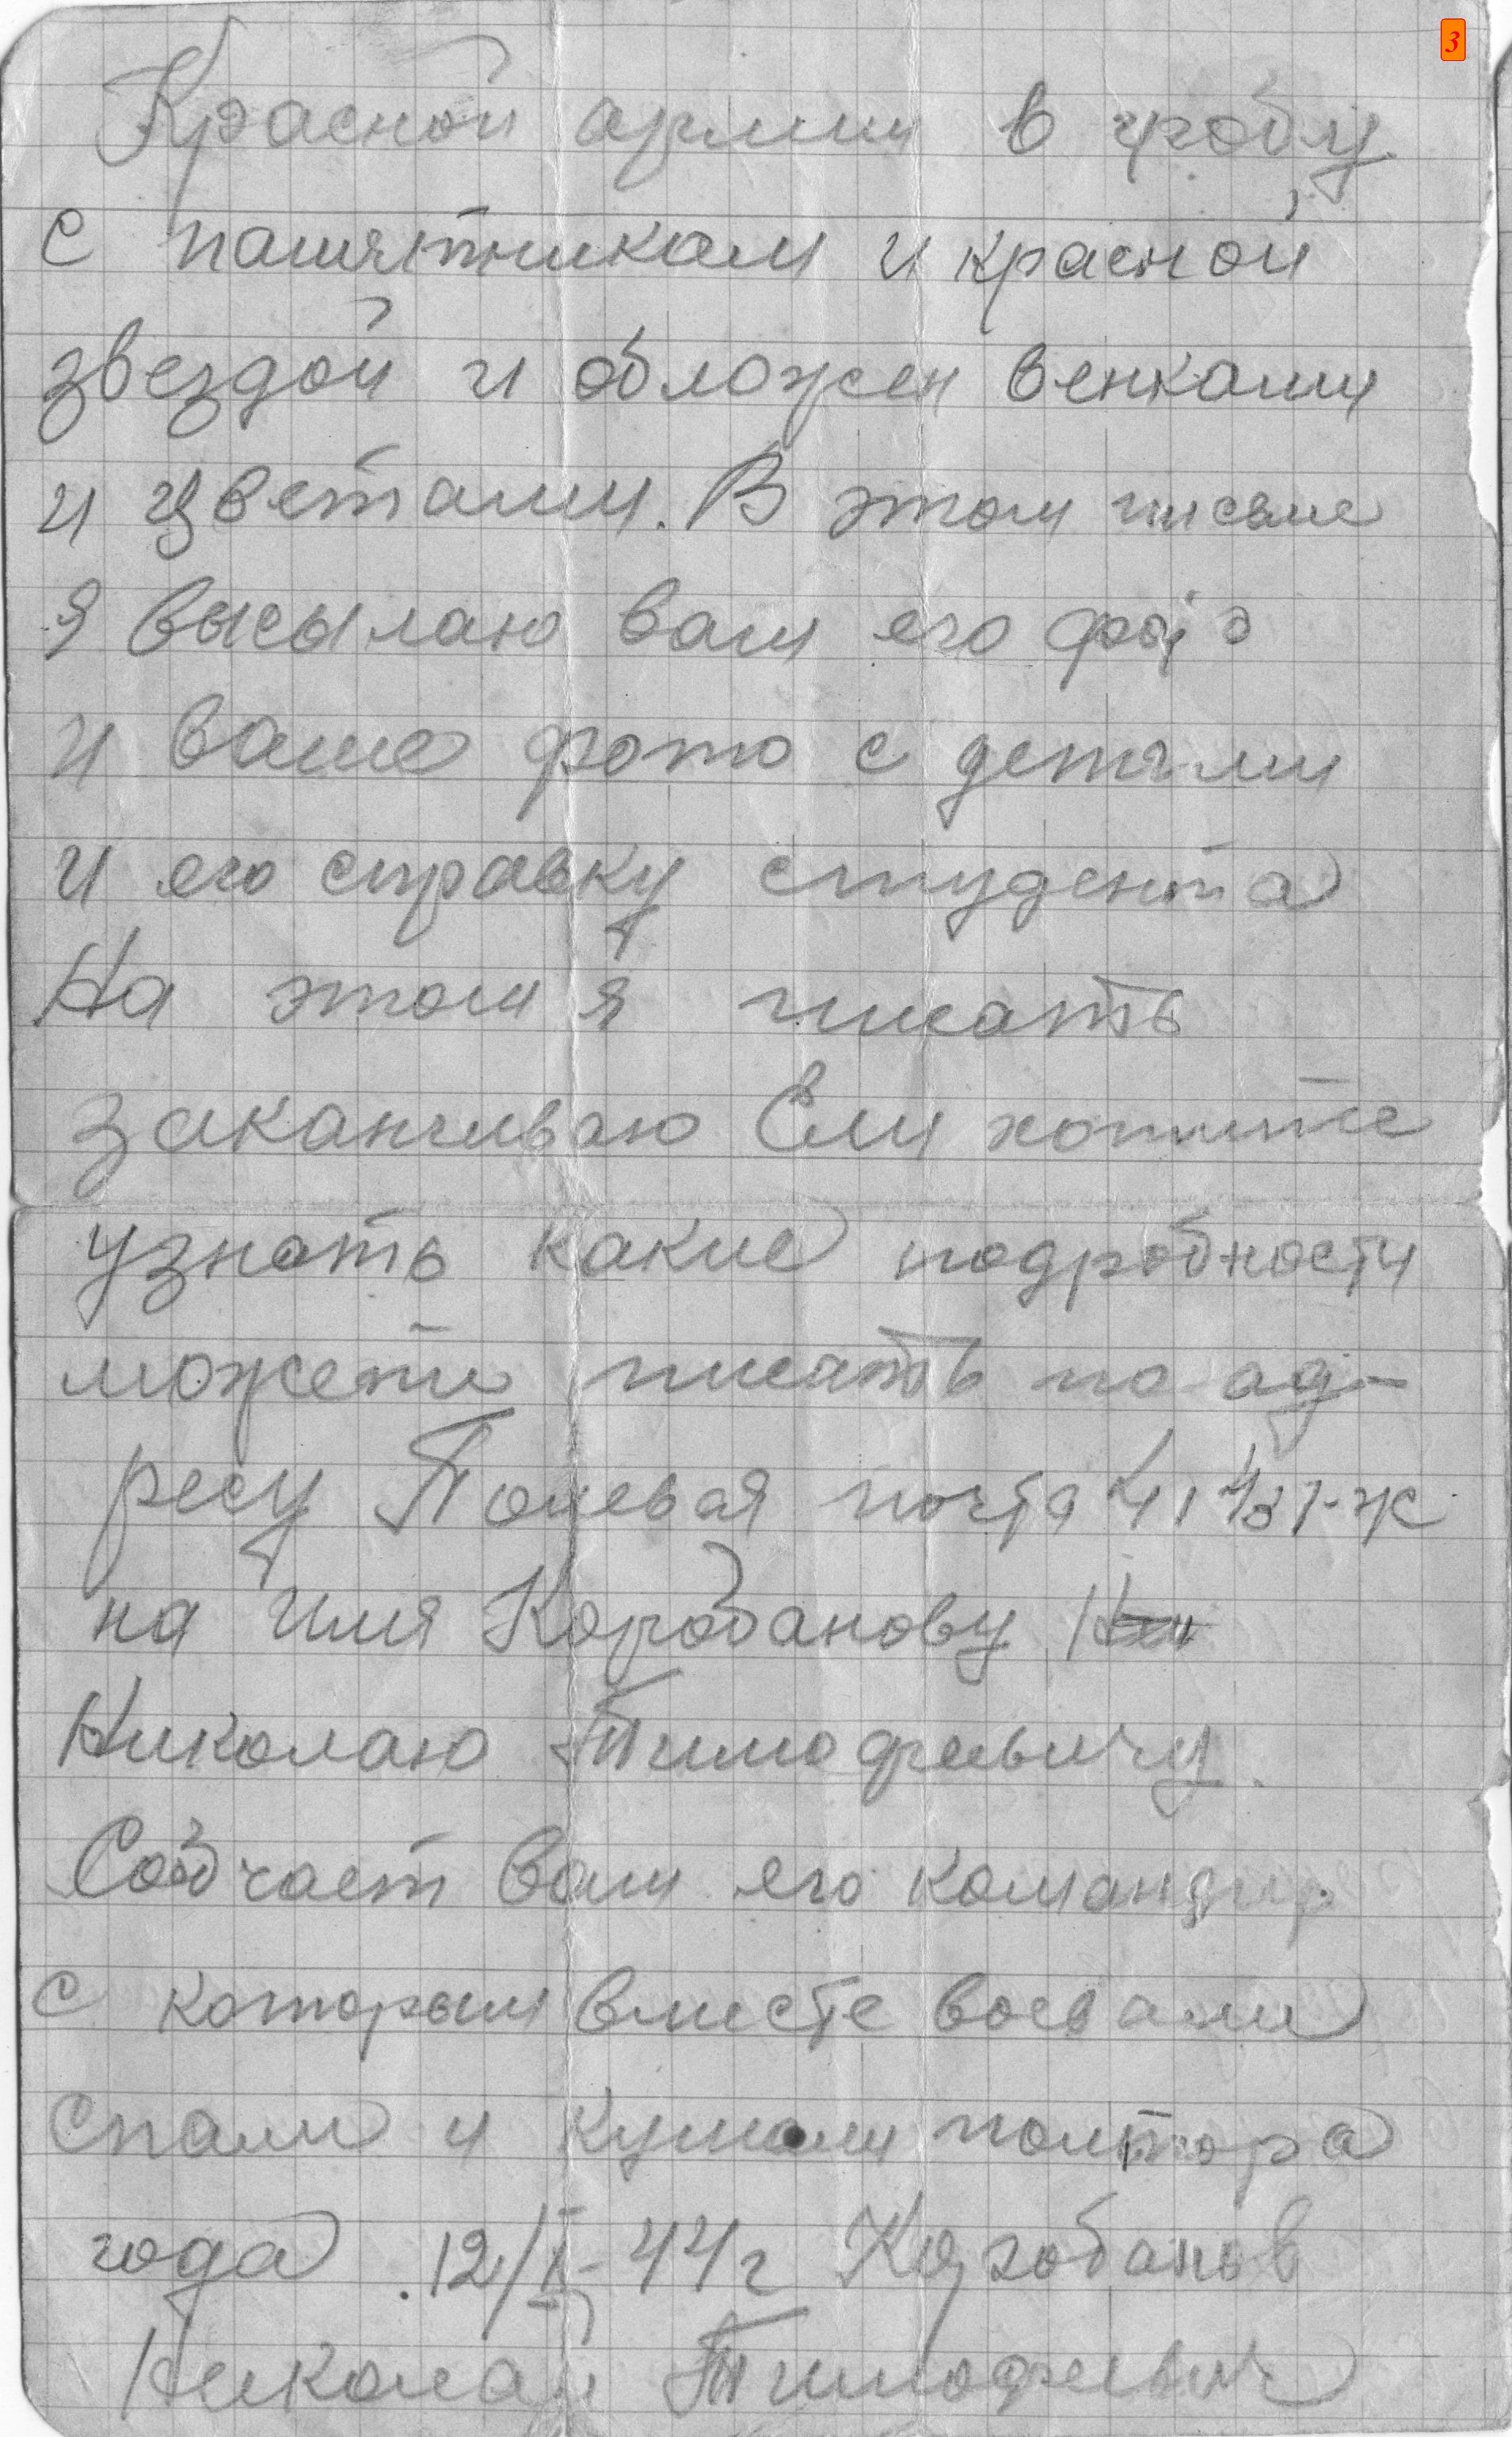 3
Красной армии в гробу
с памятникам и красной
звездой и обложен венками
и цветами. В этом письме
я высылаю вам его фото
и ваше фото с детями
и его справку студента
На этом я писать
заканчиваю Если хотите
узнать какие подробности
можете писать по ад-
ресу Полевая почта
на имя Коробанову
Николаю Тимофеевичу.
вам его командир
с которым вместе воевали
спали и кушали полтора
года. 12/I-44г Коробанов
Николай Тимофеевич